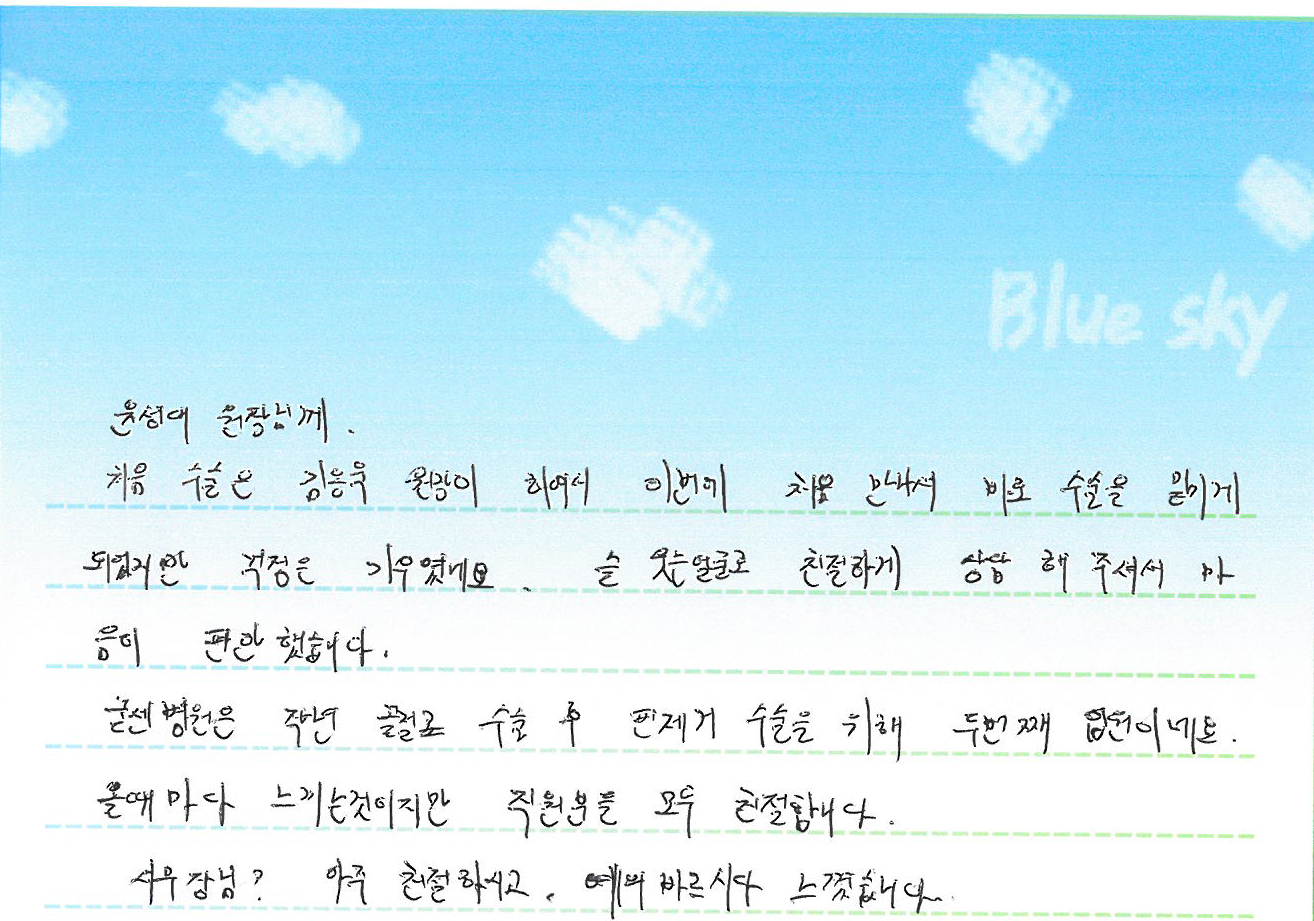 Blue sky
윤성대 원장님께.
처음 수술은 김응욱 원장이 하여서 이번에 처음 만나서 바로 수술을 맡기게
되었지만 걱정은 기우였네요. 늘 웃는얼굴로 친절하게 상담 해 주셔서 마
음이 편안했습니다.
굳센병원은 작년 골절로 수술 후 핀제거 수술을 위해 두번째 입원이네요.
올때마다 느끼는것이지만 직원분들 모두 친절합니다.
사무장님? 아주 친절하시고, 예의 바르시다 느꼈습니다..